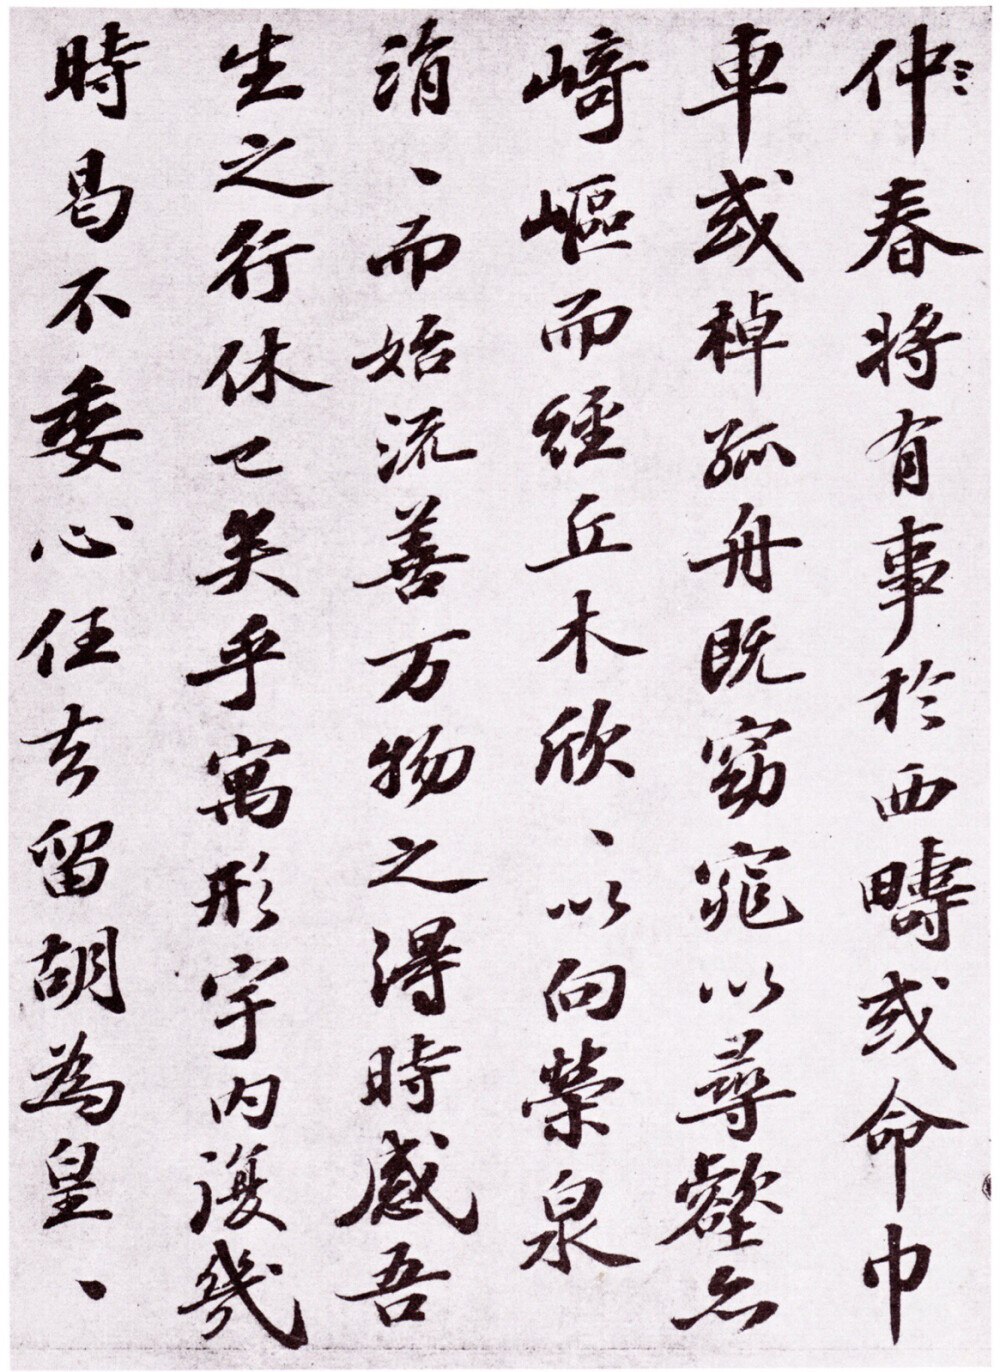 仲春將有事於西疇或命巾
車或棹孤舟既窈窕以尋壑亦
崎嶇而經丘木欣、以向榮泉
涓、而始流善万物之得時感吾
生之行休已矣乎寓形宇内復幾
時曷不委心任去留胡為皇、